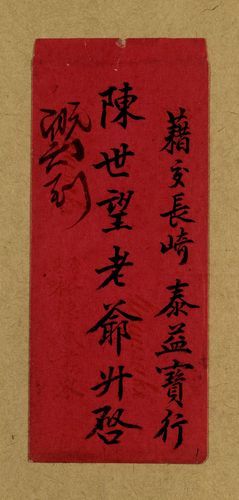 藉交長崎 泰益寶行
陳世望老爺升啓